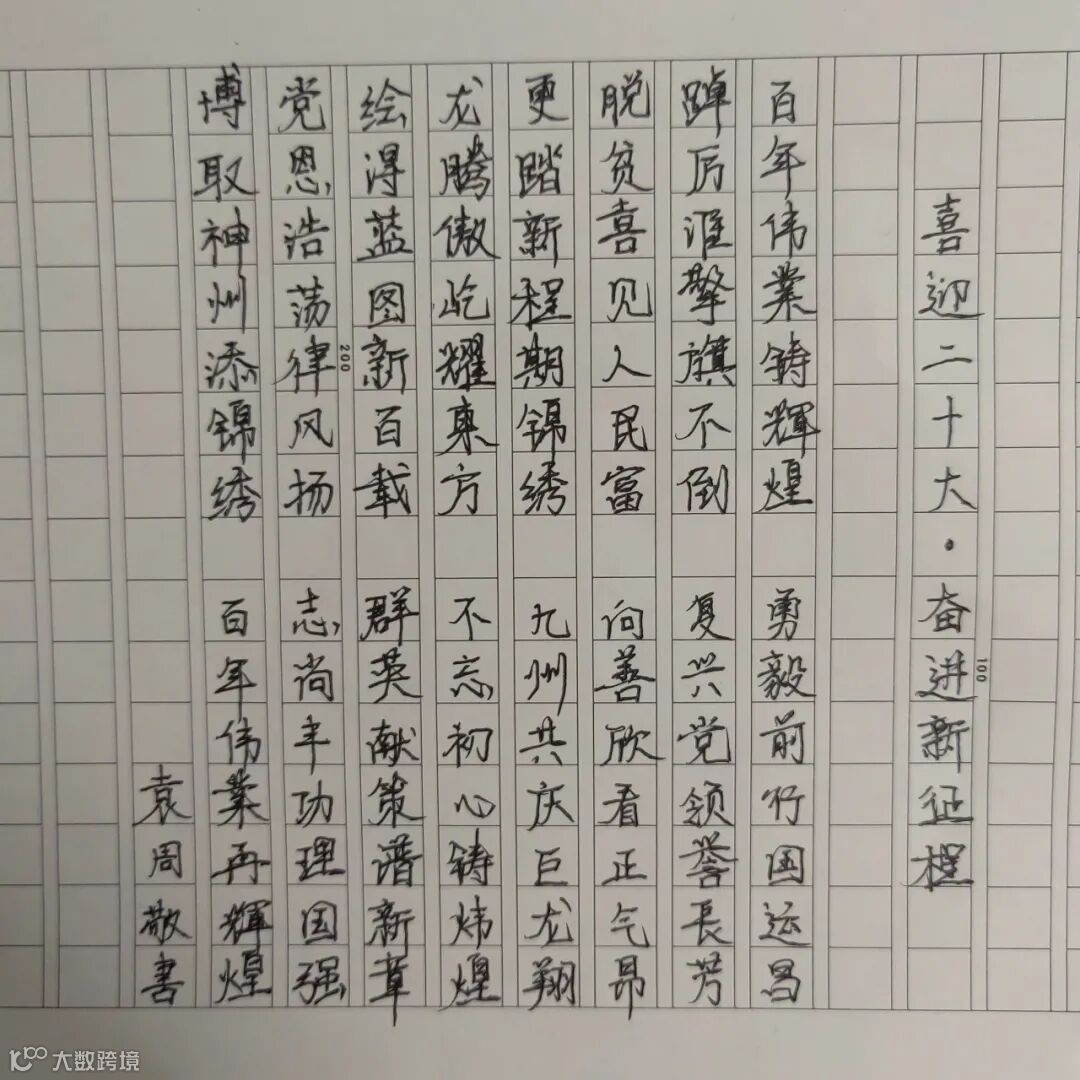 喜迎二十大·奋进新征程
百年伟業铸輝煌 勇毅前行国运昌
踔厉谁擎旗不倒 复兴党领誉長芳
脱贫喜见人民富 向善欣看正气昂
更踏新程期锦绣 九州共庆巨龙翔
龙腾傲屹耀東方 不忘初心铸炜煌
绘得蓝图新百载 群英献策谱新章
党恩浩荡律风扬 志尚丰功理国强
博取神州添锦绣 百年伟業再輝煌
袁周敬書
100
200
大数跨境